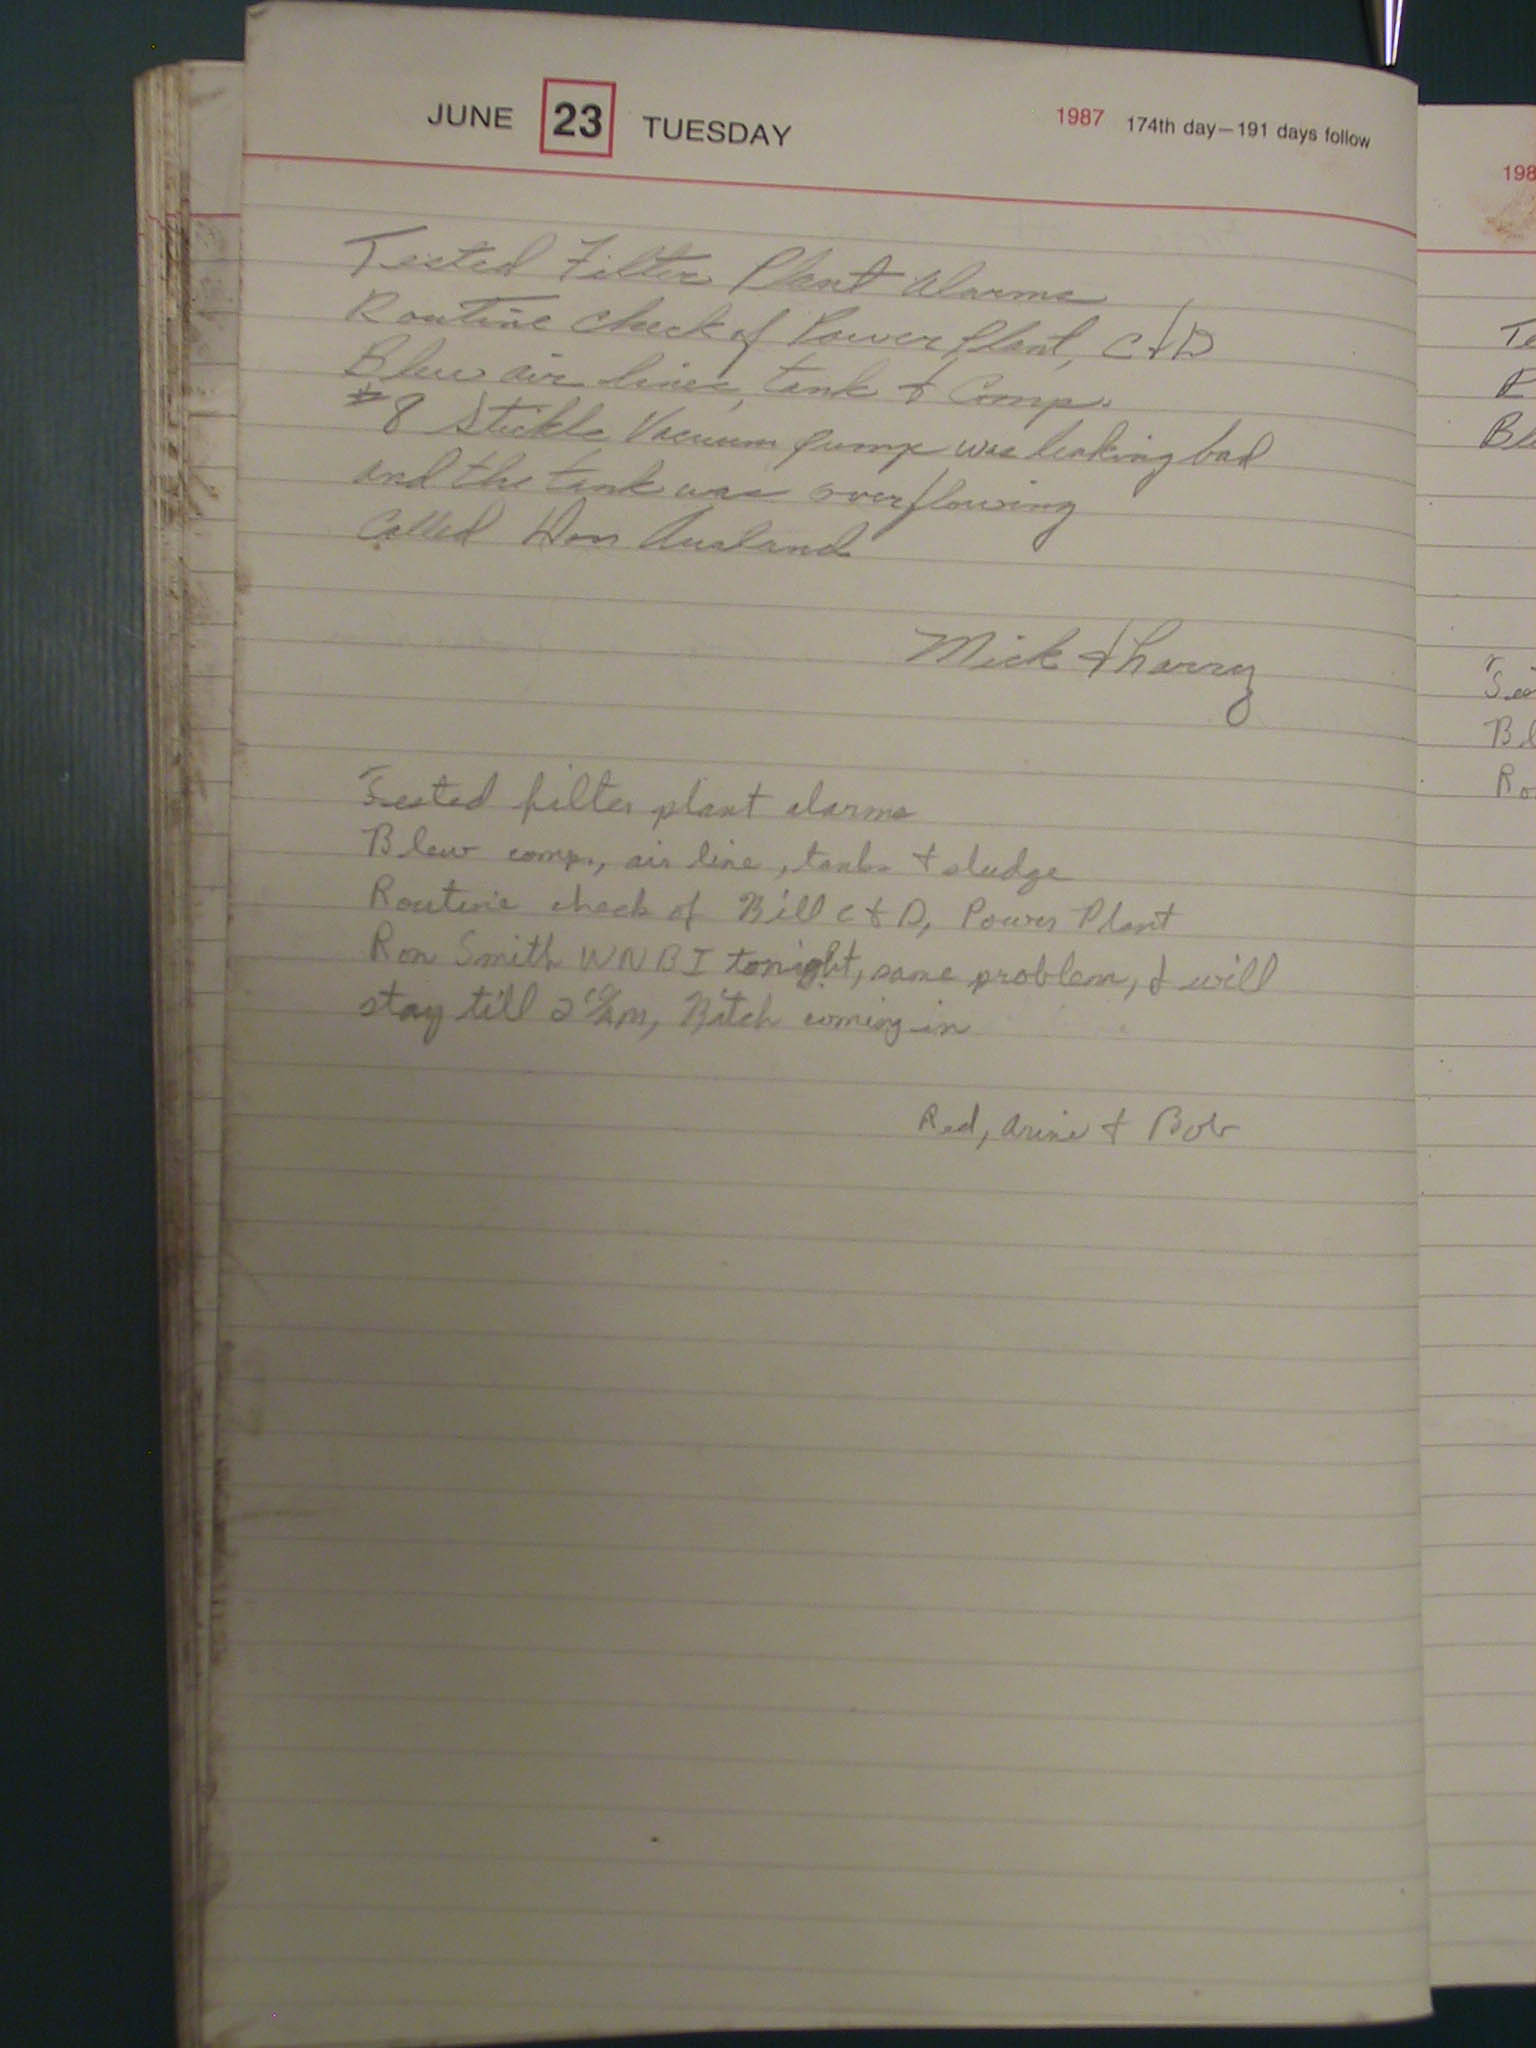 JUNE 23 TUESDAY 1987 174th day—191 days follow
Tested Filter Plant Alarms
Routine check of Power plant, C & D
Blew air lines, tank & Comp.
#8 Stickle Vacuum pump was leaking bad
and the tank was overflowing
Called Don
Mick & Larry
Tested filter plant alarms
Blew comp., air line, tanks & sludge
Routine check of Bill C & D, Power Plant
Ron Smith WNBI tonight, same problem, I will
stay till 2 AM, Butch coming in
Red, & Bob
198
Te
R
Bl
Te
Bl
Ro